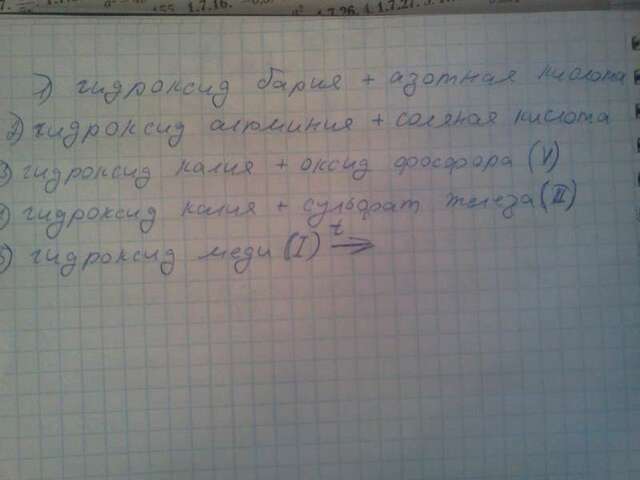 1) гидроксид бария + азотная кислота
2) гидроксид алюминия + соляная кислота
3) гидроксид калия + оксид фосфора (V)
4) гидроксид калия + сульфат железа (II)
5) гидроксид меди (I) t →